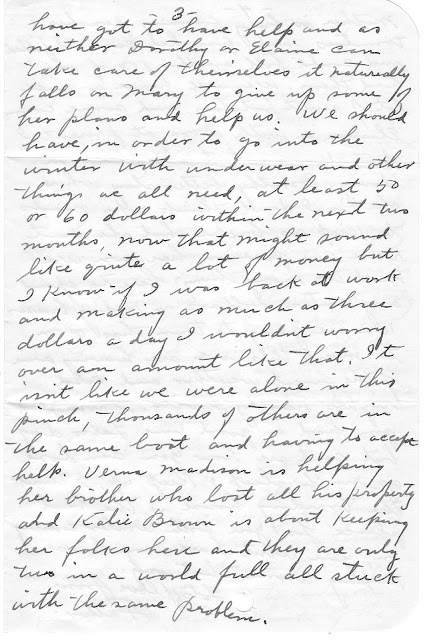 3-
have got to have help and as
neither Dorothy or Elaine can
take care of themselves it natureally
falls on Mary to give up some of
her plans and help us. We should
have, in order to go into the
winter with underwear and other
things we all need, at least 50
or 60 dollars within the next two
months, now that might sound
like quite a lot of money but
I know if I was back at work
and making as much as three
dollars a day I wouldnt worry
over an amount like that. It
isnt like we were alone in this
pinch, thousands of others are in
the same boat and having to accept
help. Verna Madison is helping
her brother who lost all his property
and Katie Brown is about keeping
her folks here and they are only
two in a world full all stuck
with the same problem.